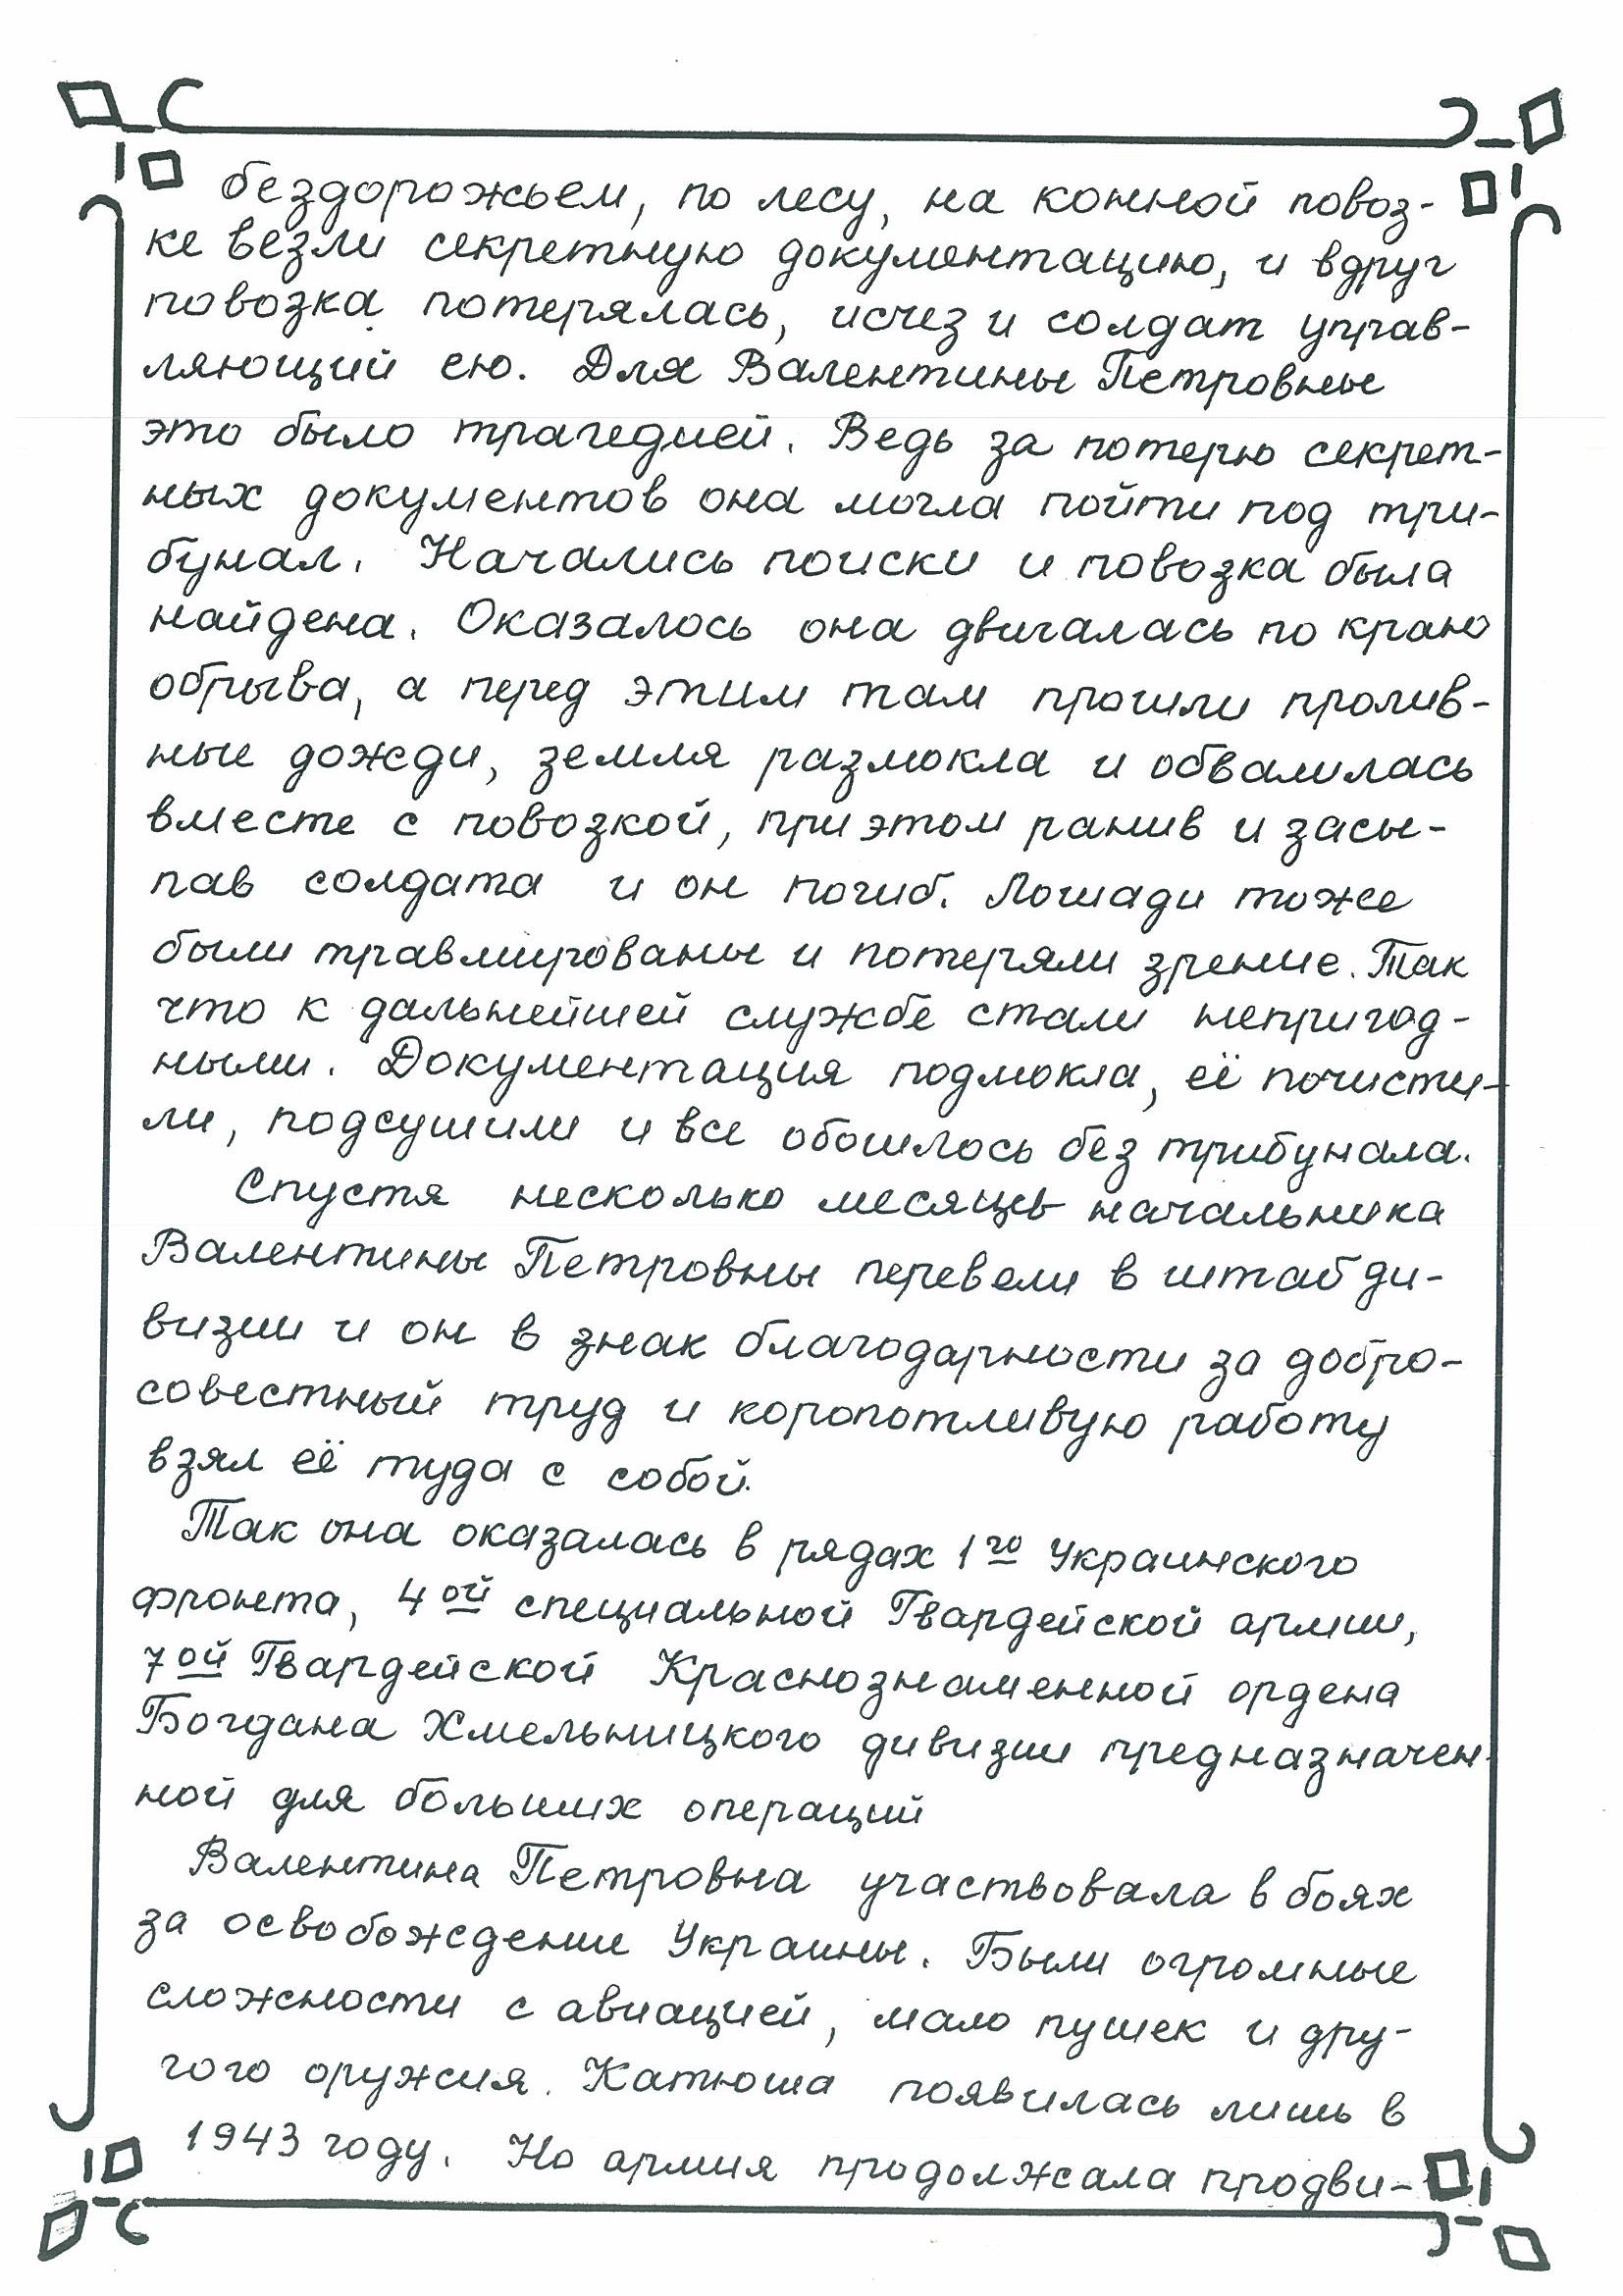 бездорожьем, по лесу, на конной повоз-
ке везли секретную документацию, и вдруг
повозка потерялась, исчез и солдат управ-
ляющий ею. Для Валентины Петровны
это было трагедией. Ведь за потерю секрет-
ных документов она могла пойти под три-
бунал. Начались поиски и повозка была
найдена. Оказалось она двигалась по краю
обрыва, а перед этим там прошли пролив-
ные дожди, земля размокла и обвалилась
вместе с повозкой, при этом ранив и засы-
пав солдата и он погиб. Лошади тоже
были травмированы и потеряли зрение. Так
что к дальнейшей службе стали непригод-
ными. Документация подмокла, её почисти-
ли, подсушили и все обошлось без трибунала.
Спустя несколько месяцев начальника
Валентины Петровны перевели в штаб ди-
визии и он в знак благодарности за добро-
совестный труд и коропотливую работу
взял её туда с собой.
Так она оказалась в рядах 1го Украинского
фронта, 4ой специальной Гвардейской армии,
7ой Гвардейской Краснознаменной ордена
Богдана Хмельницкого дивизии предназначен-
ной для больших операций
Валентина Петровна участвовала в боях
за освобождение Украины. Были огромные
сложности с авиацией, мало пушек и дру-
гого оружия. Катюша появилась лишь в
1943 году. Но армия продолжала продви-